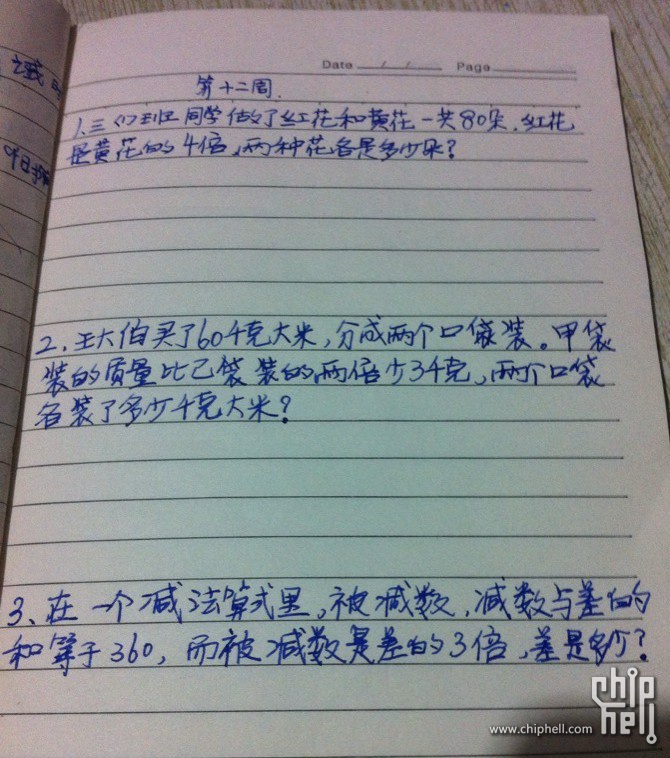 Date / / Page
第十二周.
1.三(7)班同学做了红花和黄花一共80朵.红花
是黄花的4倍,两种花各是多少朵?
2.王大伯买了60千克大米,分成两个口袋装。甲袋
装的质量比乙袋装的两倍少3千克,两个口袋
各装了多少千克大米?
3、在一个减法算式里,被减数,减数与差的
和等于360,而被减数是差的3倍,差是多少?
chip
hell
www.chiphell.com